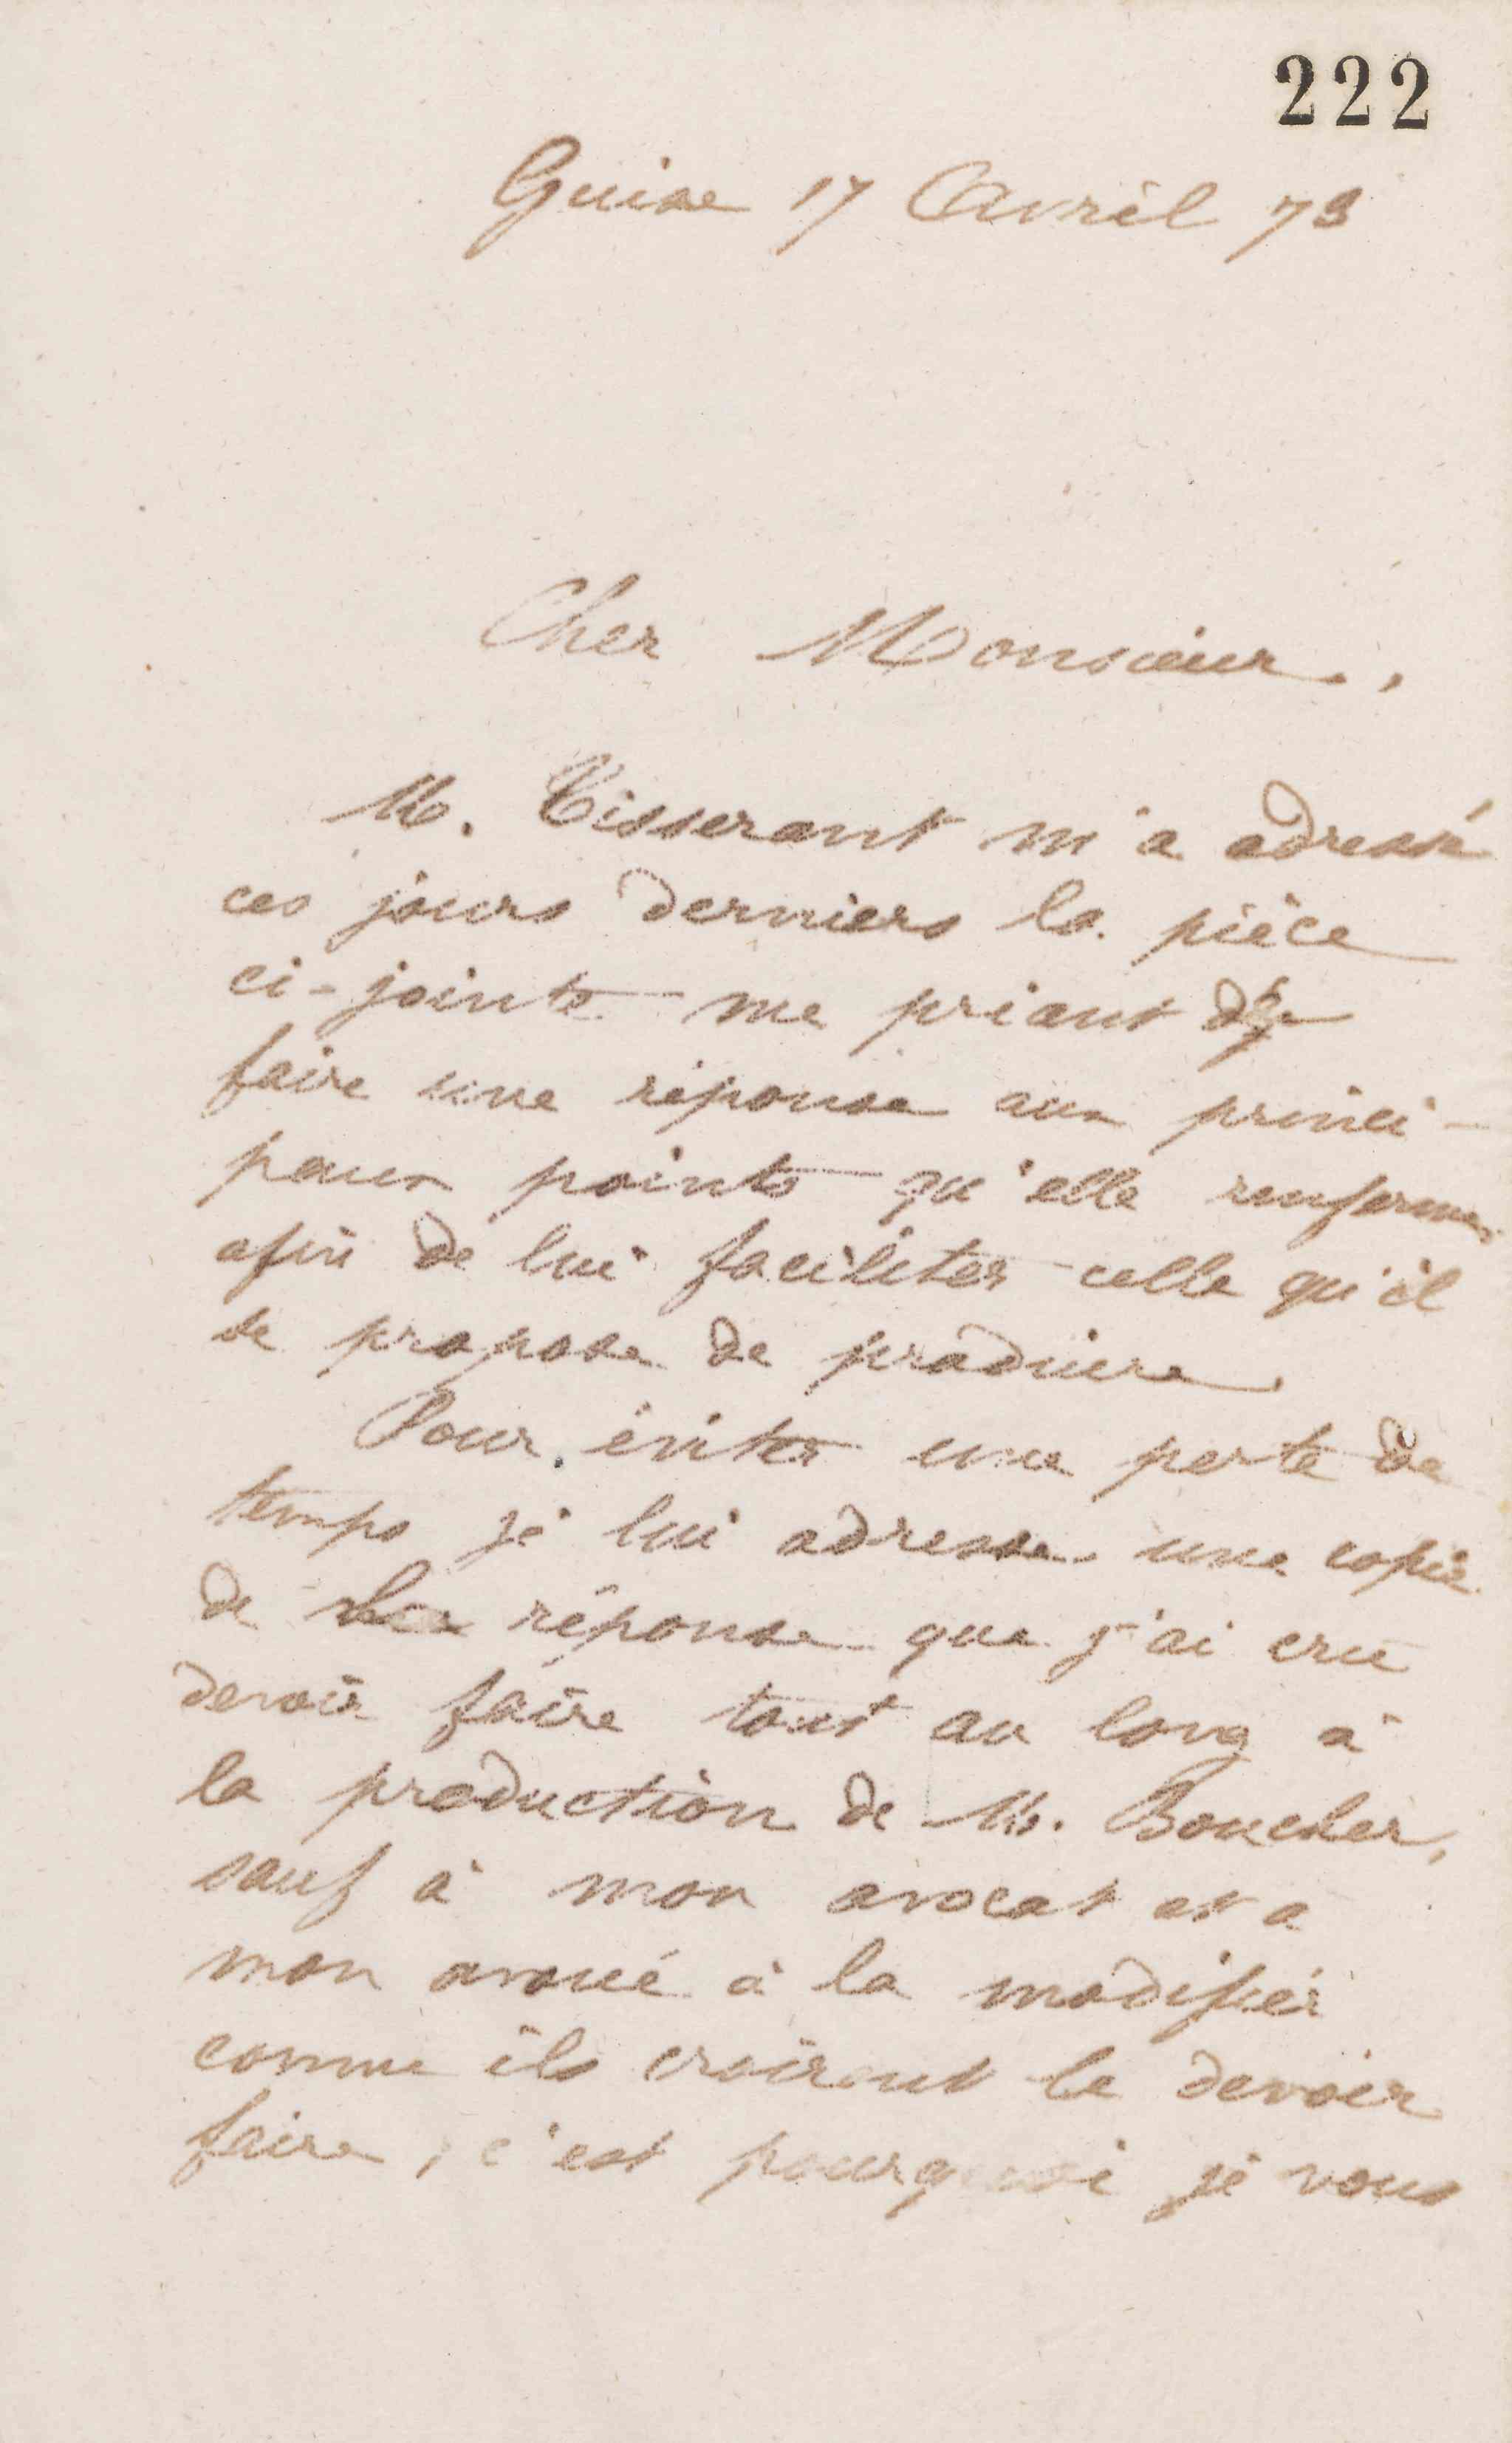 222
Guise 17 Avril 73
Cher Monsieur,
M. Tisserant m'a adressé
ces jours derniers la pièce
ci-jointe me priant de
faire une réponse aux princi-
paux points qu'elle renferme
afin de lui faciliter celle qu'il
se propose de produire.
Pour éviter une perte de
temps je lui adresse une copie
de la réponse que j'ai cru
devoir faire tout au long à
la production de M. Boucher,
sauf à mon avocat et a
mon avoué à la modifier
comme ils croiront le devoir
faire, c'est pourquoi je vous